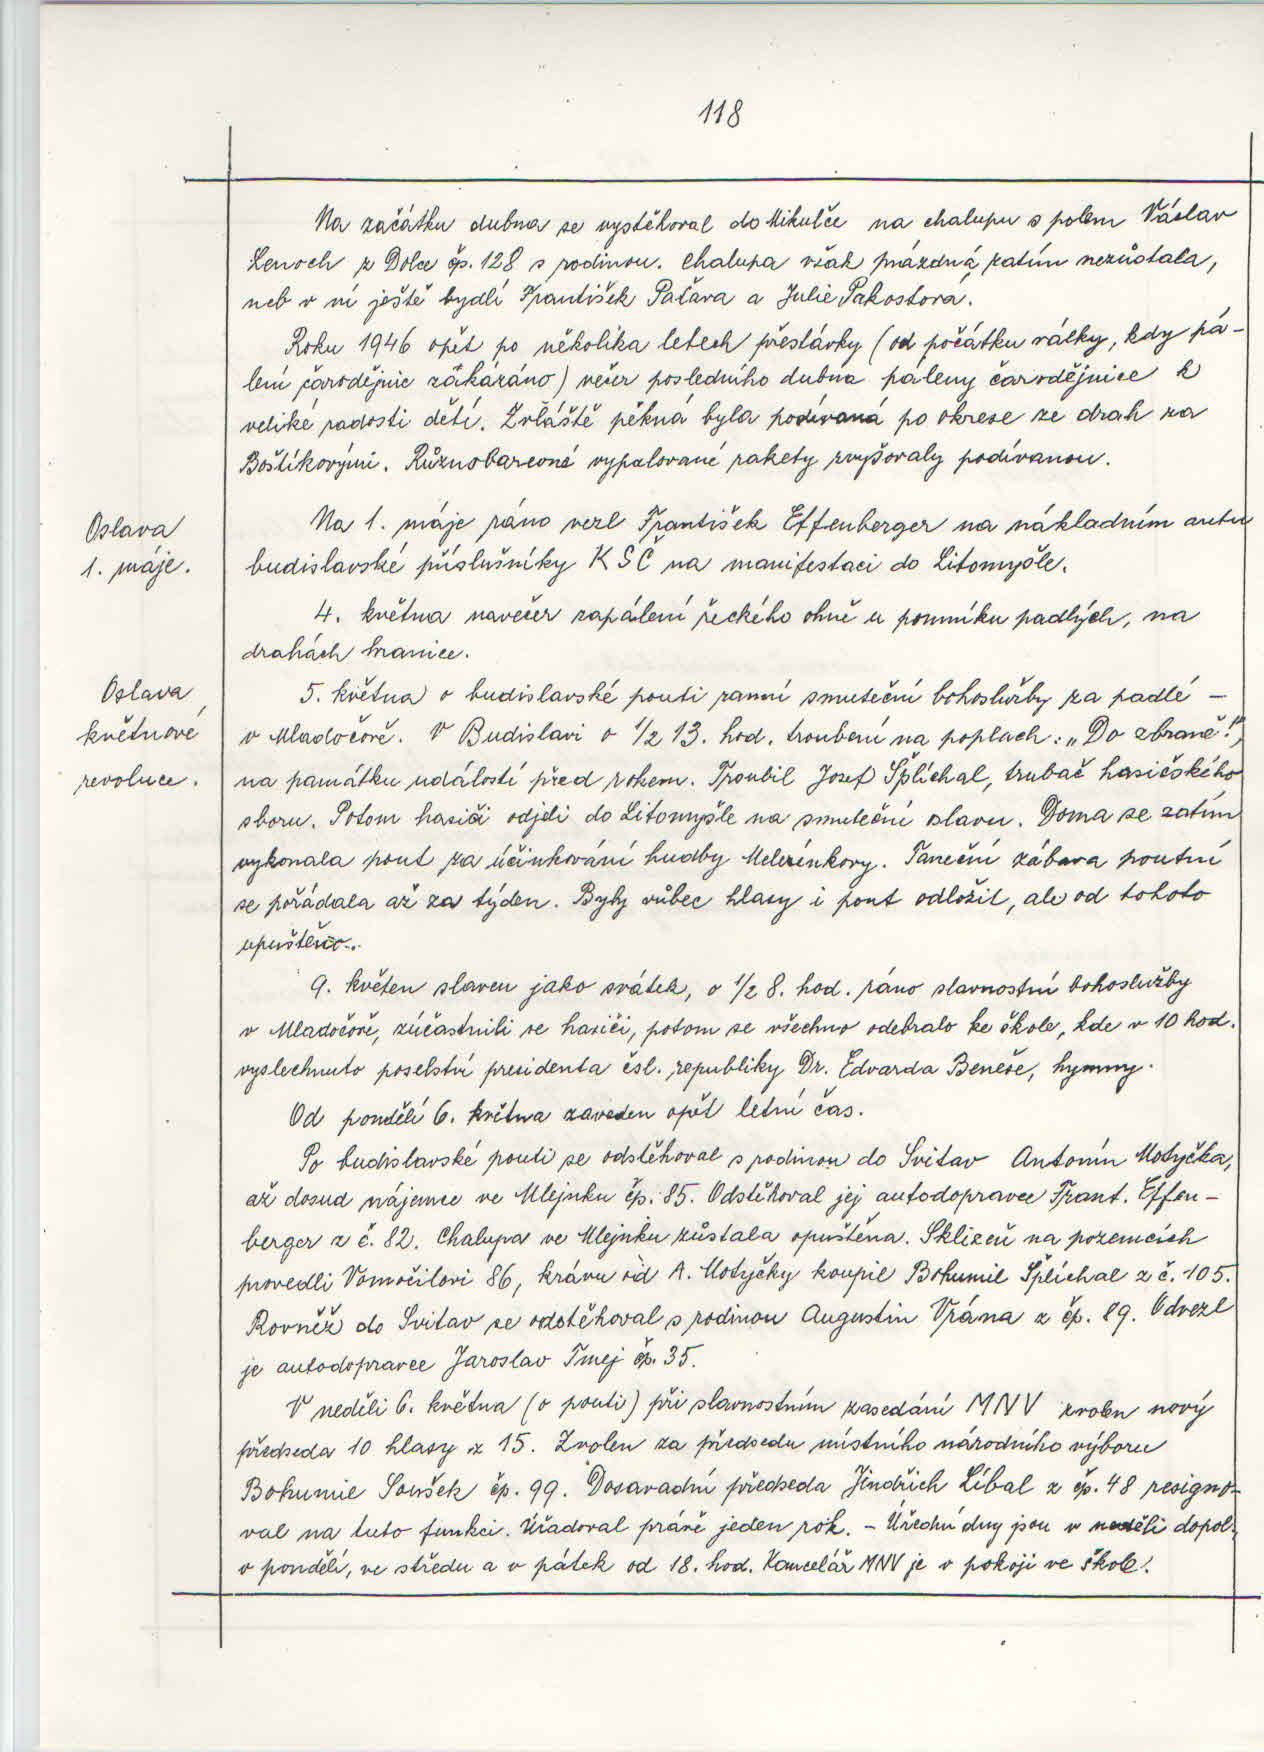 118
Na začátku dubna se vystěhoval do Mikulče na chalupu s polem Václav
Lenoch z Dolce čp. 128 s rodinou. Chalupa však prázdná zatím nezůstala,
neb v ní ještě bydlí František Paťava a Julie Pakostová.
Roku 1946 opět po několika letech přestávky (od počátku války, kdy pá-
lení čarodějnic zakázáno) večer posledního dubna páleny čarodějnice k
veliké radosti dětí. Zvláště pěkná byla podívaná po okrese ze drah za
Boštíkovými. Různobarevné vypalované rakety zvyšovaly podívanou.
Oslava
1. máje.
Na 1. máje ráno vezl František Effenberger na nákladním autu
budislavské příslušníky KSČ na manifestaci do Litomyšle.
4. května navečer zapálení řeckého ohně u pomníku padlých, na
drahách hranice.
Oslava
květnové
revoluce.
5. května o budislavské pouti ranní smuteční bohoslužby za padlé –
v Mladočově. V Budislavi o 1/2 13. hod. troubení na poplach: „Do zbraně!",
na památku událostí před rokem. Troubil Josef Šplíchal, trubač hasičského
sboru. Potom hasiči odjeli do Litomyšle na smuteční slavu. Doma se zatím
vykonala pout za účinkování hudby Melezínkovy. Taneční zábava poutní
se pořádala až za týden. Byly vůbec hlasy i pout odložit, ale od tohoto
upuštěno.
9. květen slaven jako svátek, o 1/2 8. hod. ráno slavnostní bohoslužby
v Mladočově, zúčastnili se hasiči, potom se všechno odebralo ke škole, kde v 10 hod.
vyslechnuto poselství presidenta čsl. republiky Dr. Edvarda Beneše, hymny.
Od pondělí 6. května zaveden opět letní čas.
Po budislavské pouti se odstěhoval s rodinou do Svitav Antonín Motyčka,
až dosud nájemce ve Mlejnku čp. 85. Odstěhoval jej autodopravce Frant. Effen-
berger z č. 82. Chalupa ve Mlejnku zůstala opuštěna. Sklizeň na pozemcích
provedli Vomočilovi 86, krávu od A. Motyčky koupil Bohumil Šplíchal z č. 105.
Rovněž do Svitav se odstěhoval s rodinou Augustin Vrána z čp. 89. Odvezl
je autodopravce Jaroslav Tmej čp. 35.
V neděli 6. května (o pouti) při slavnostním zasedání MNV zvolen nový
předseda 10 hlasy z 15. Zvolen za předsedu místního národního výboru
Bohumil Soušek čp. 99. Dosavadní předseda Jindřich Líbal z čp. 48 resigno-
val na tuto funkci. Úřadoval právě jeden rok. – Úřední dny jsou v neděli dopol.,
v pondělí, ve středu a v pátek od 18. hod. Kancelář MNV je v pokoji ve škole.